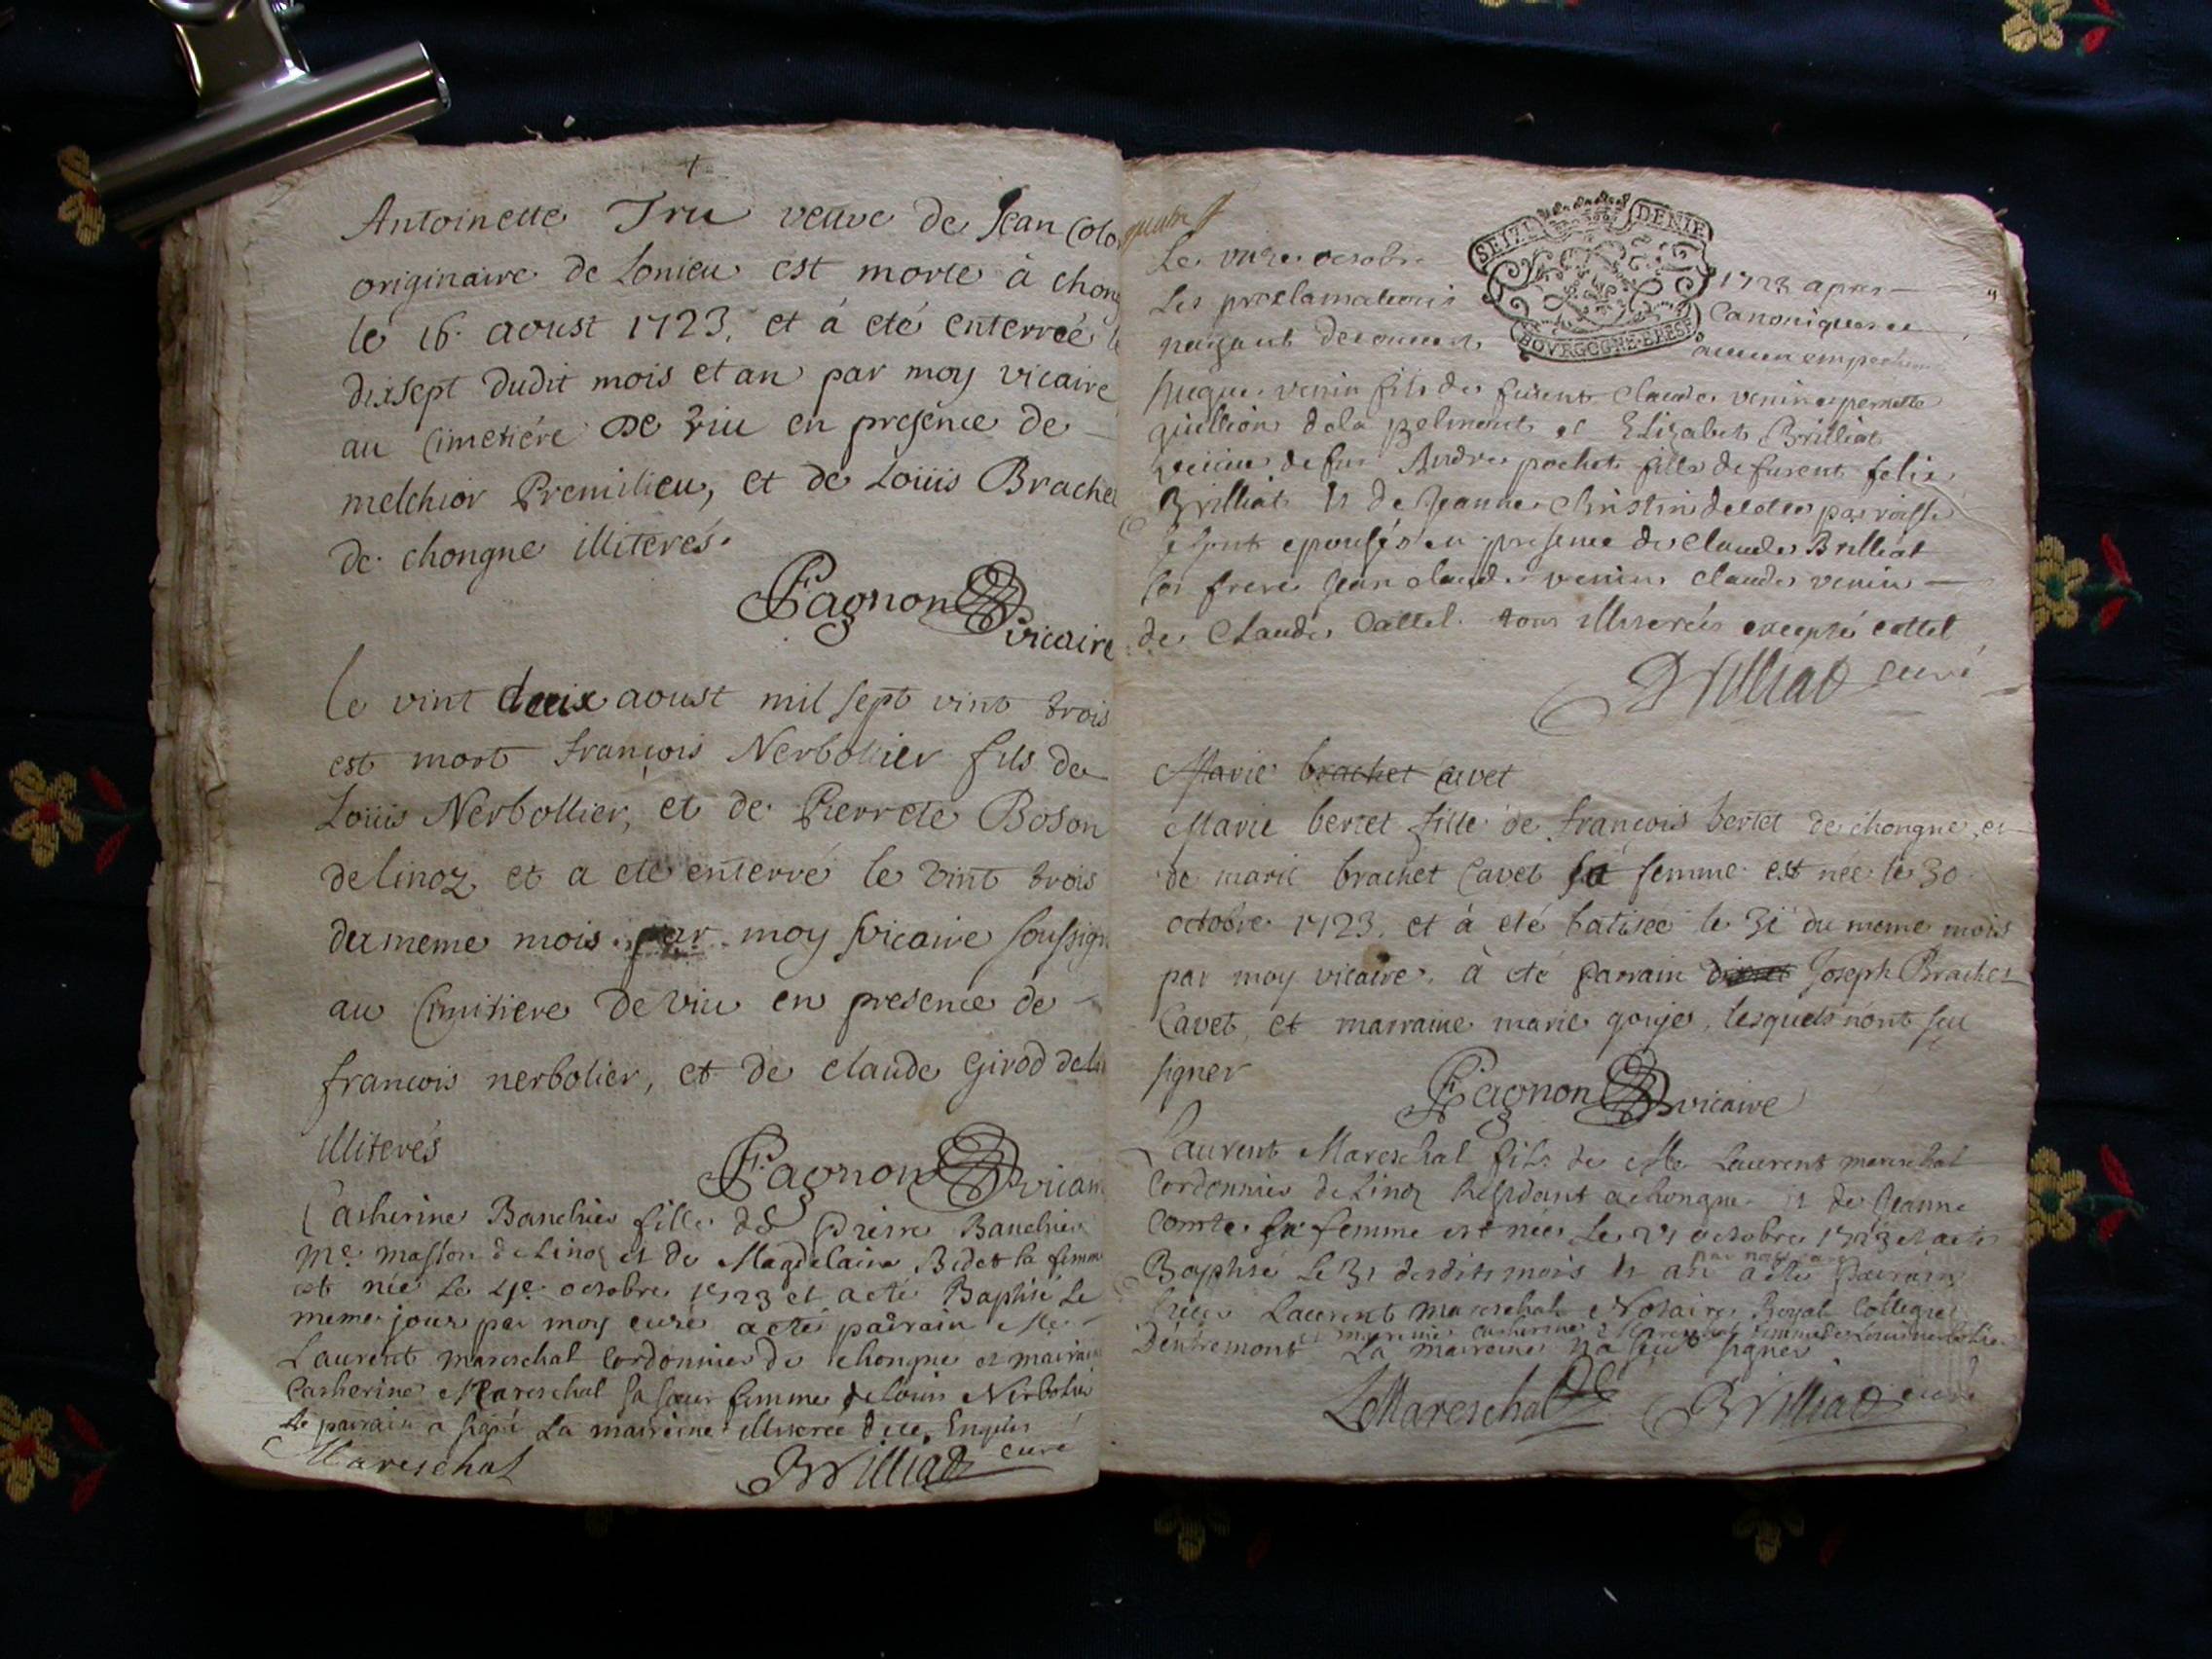 Antoinette Tru veuve de Jean
originaire de Lonieu est morte à
le 16. aoust 1723, et à eté enterreé
dixsept dudit mois et an par moy vicaire
au Cimetiére De viu en presence de
melchior Premilieu, et de Loüis
de chongne illiterés.
Fagnon vicaire
le vint deux aoust mil sept vint trois
est mort françois Nerbollier fils de
Loüis Nerbollier, et de Pierrete Boson
de linoz et a eté enterré le vint trois
du meme mois par moy vicaire
au Cimitiere De viu en presence de
francois nerbolier, et de claude Girod
illiterés
Fagnon
Catherine Banchier fille de pierre Banchier
me masson de Linoz et de Magdelaine Bidot sa
est née Le octobre 1723 et a eté Baptisé Le
meme jour par moy curé a eté pairain Me
Laurent mareschal Cordonnier de chongne et
Catherine Mareschal sa soeur femme de Louis
le pairain a signé La maireine illiterée
Mareschal Brilliat curé
SEIZE DENIE
BOVRGOGNE·BRESE
Le octobre 1723 apres
Les proclamations Canoniques et
aucun
venin fils de claude venin et
de la et Elizabet Brilliat
de feu André pochet fille de felix
Brilliat et de Jeanne Christin paroisse
se sont epousés en presence de Claude Brilliat
frere Jean claude venin claude venin
de Claude Cattel. tous illiterés excepté cattel
Brilliat curé
Marie brachet cavet
Marie bertet fille de françois bertet de chongne, et
de marie brachet Cavet sa femme est née le 30
octobre 1723. et à eté batisée le 31 du meme mois
par moy vicaire. à eté parrain Joseph Brachet
Cavet, et marraine marie gouje, lesquels n'ont sçu
signer
Fagnon vicaire
Laurent Mareschal fils de Me Laurent mareschal
Cordonnier de Linoz Residant a chongne et de Jeanne
Comte sa femme est née Le octobre 1723 et a eté
par nous
Baptisé Le 31 desdits mois et an a eté pairain
Laurent mareschal Notaire Royal
maireine catherine Mareschal femme de Louis nerbolier
Dentremont La maireine n'a sçu signer
LeMareschal Brilliat curé